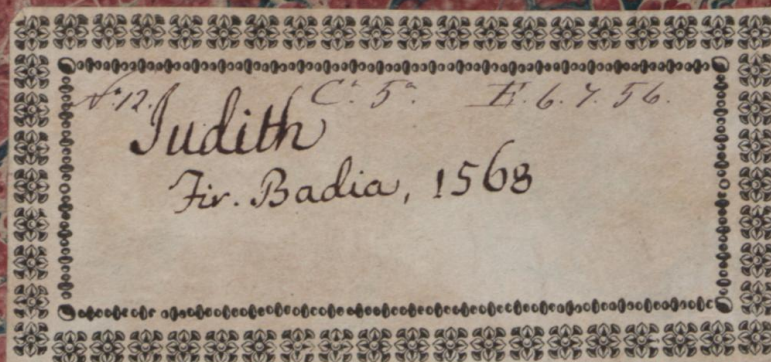 N.º 12. C.ª 5.ª E. 6. 7. 56.
Iudith
Fir. Badia, 1568